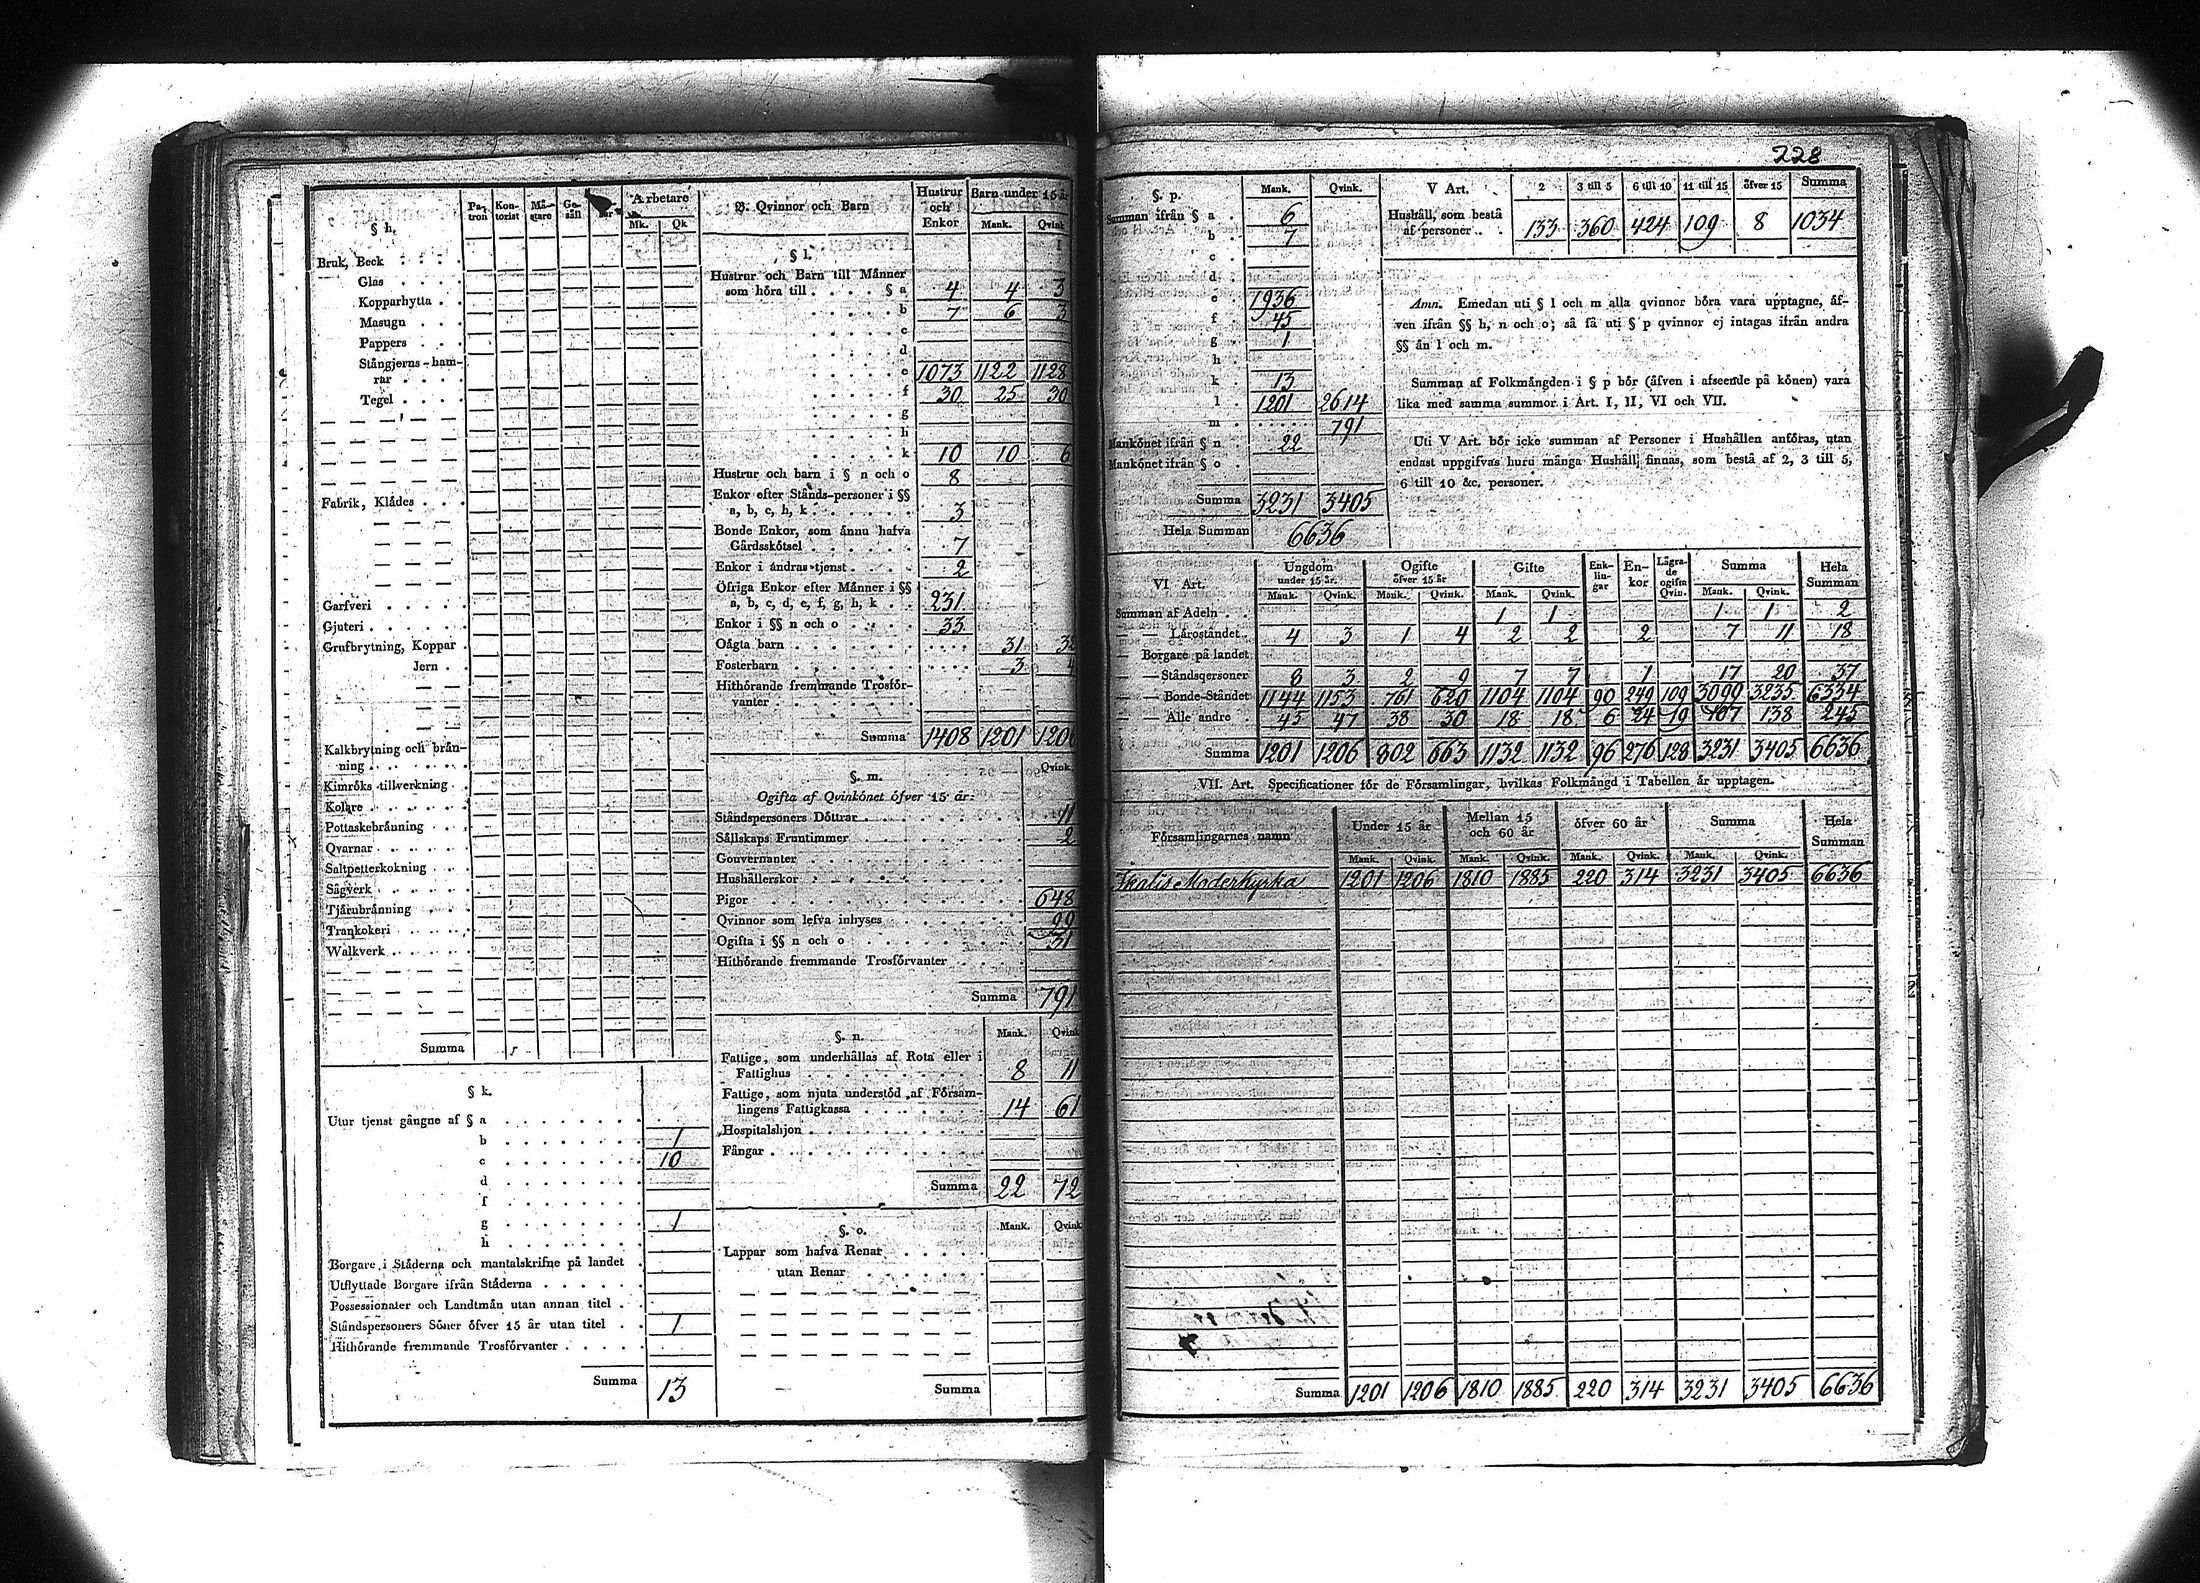 228
§ h. Patron Kontorist Mästare Gesäll Arbetare
Mk. Qk
Bruk, Beck
Glas
Kopparhytta
Masugn
Pappers
Stångjerns-hamrar
Tegel
Fabrik, Klädes
Garfveri
Gjuteri
Grufbrytning, Koppar
Jern
Kalkbrytning och brän-
ning
Kimröks tillverkning
Kolare
Pottaskebränning
Qvarnar
Saltpetterkokning
Sågverk
Tjärubränning
Trankokeri
Walkverk
Summa
§ k.
Utur tjenst gångne af § a
b 1
c 10
d
f
g 1
h
Borgare i Städerna och mantalskrifne på landet
Utflyttade Borgare ifrån Städerna
Possessionater och Landtmän utan annan titel
Ståndspersoners Söner öfver 15 år utan titel 1
Hithörande fremmande Trosförvanter
Summa 13
B. Qvinnor och Barn Hustrur och Enkor Barn under 15 år
Mank. Qvink
§ l.
Hustrur och Barn till Männer
som höra till § a 4 4 3
b 7 6 3
c
d
e 1073 1122 1128
f 30 25 30
g
h
k 10 10 6
Hustrur och barn i § n och o 8
Enkor efter Stånds-personer i §§
a, b, c, h, k 3
Bonde Enkor, som ännu hafva
Gårdsskötsel 7
Enkor i andras tjenst 2
Öfriga Enkor efter Männer i §§
a, b, c, d, e, f, g, h, k 231
Enkor i §§ n och o 33
Oägta barn 31 32
Fosterbarn 3 4
Hithörande fremmande Trosför-
vanter
Summa 1408 1201 1206
§. m. Qvink.
Ogifta af Qvinkönet öfver 15 år:
Ståndspersoners Döttrar 11
Sällskaps Fruntimmer 2
Gouvernanter
Hushållerskor
Pigor 648
Qvinnor som lefva inhyses 99
Ogifta i §§ n och o 31
Hithörande fremmande Trosförvanter
Summa 791
§. n. Mank. Qvink
Fattige, som underhållas af Rota eller i
Fattighus 8 11
Fattige, som njuta understöd af Församlingens Fattigkassa 14 61
Hospitalshjon
Fångar
Summa 22 72
§. o. Mank. Qvink
Lappar som hafva Renar
utan Renar
Summa
§. p. Mank. Qvink.
Summan ifrån § a 6
b 7
c
d
e 1936
f 45
g 1
h
k 13
l 1201 2614
m 791
Mankönet ifrån § n 22
Mankönet ifrån § o
Summa 3231 3405
Hela Summan 6636
V Art. 2 3 till 5 6 till 10 11 till 15 öfver 15 Summa
Hushåll, som bestå
af personer 133 360 424 109 8 1034
Anm. Emedan uti § l och m alla qvinnor böra vara upptagne, äf-
ven ifrån §§ h, n och o; så få uti § p qvinnor ej intagas ifrån andra
§§ än l och m.
Summan af Folkmängden i § p bör (äfven i afseende på könen) vara
lika med samma summor i Art. I, II, VI och VII.
Uti V Art. bör icke summan af Personer i Hushållen anföras, utan
endast uppgifvas huru många Hushåll finnas, som bestå af 2, 3 till 5,
6 till 10 &c. personer.
VI Art. Ungdom under 15 år. Ogifte öfver 15 år Gifte Enklingar Enkor Lägrade ogifta Qvin. Summa Hela Summan
Mank. Qvink. Mank. Qvink. Mank. Qvink. Mank. Qvink.
Summan af Adeln 1 1 1 1 2
— — Läroståndet 4 3 1 4 2 2 2 7 11 18
— Borgare på landet
— Ståndspersoner 8 3 2 9 7 7 1 17 20 37
— — Bonde-Ståndet 1144 1153 761 620 1104 1104 90 249 109 3099 3235 6334
— — Alle andre 45 47 38 30 18 18 6 24 19 107 138 245
Summa 1201 1206 802 663 1132 1132 96 276 128 3231 3405 6636
VII. Art. Specificationer för de Församlingar, hvilkas Folkmängd i Tabellen är upptagen.
Församlingarnes namn Under 15 år Mellan 15 och 60 år öfver 60 år Summa Hela Summan
Mank. Qvink. Mank. Qvink. Mank. Qvink. Mank. Qvink.
Moderkyrka 1201 1206 1810 1885 220 314 3231 3405 6636
Summa 1201 1206 1810 1885 220 314 3231 3405 6636